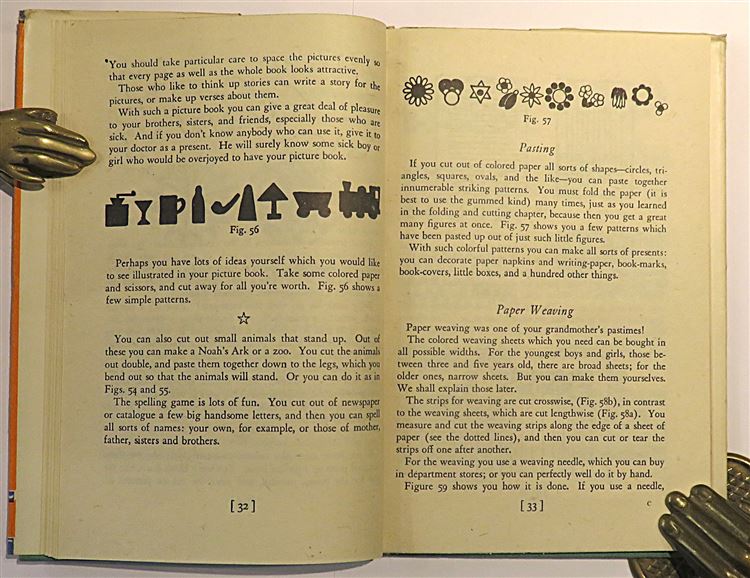 You should take particular care to space the pictures evenly so
that every page as well as the whole book looks attractive.
Those who like to think up stories can write a story for the
pictures, or make up verses about them.
With such a picture book you can give a great deal of pleasure
to your brothers, sisters, and friends, especially those who are
sick. And if you don't know anybody who can use it, give it to
your doctor as a present. He will surely know some sick boy or
girl who would be overjoyed to have your picture book.
Fig. 56
Perhaps you have lots of ideas yourself which you would like
to see illustrated in your picture book. Take some colored paper
and scissors, and cut away for all you're worth. Fig. 56 shows a
few simple patterns.
You can also cut out small animals that stand up. Out of
these you can make a Noah's Ark or a zoo. You cut the animals
out double, and paste them together down to the legs, which you
bend out so that the animals will stand. Or you can do it as in
Figs. 54 and 55.
The spelling game is lots of fun. You cut out of newspaper
or catalogue a few big handsome letters, and then you can spell
all sorts of names: your own, for example, or those of mother,
father, sisters and brothers.
[ 32 ]
Fig. 57
Pasting
If you cut out of colored paper all sorts of shapes—circles, tri-
angles, squares, ovals, and the like—you can paste together
innumerable striking patterns. You must fold the paper (it is
best to use the gummed kind) many times, just as you learned
in the folding and cutting chapter, because then you get a great
many figures at once. Fig. 57 shows you a few patterns which
have been pasted up out of just such little figures.
With such colorful patterns you can make all sorts of presents:
you can decorate paper napkins and writing-paper, book-marks,
book-covers, little boxes, and a hundred other things.
Paper Weaving
Paper weaving was one of your grandmother's pastimes!
The colored weaving sheets which you need can be bought in
all possible widths. For the youngest boys and girls, those be-
tween three and five years old, there are broad sheets; for the
older ones, narrow sheets. But you can make them yourselves.
We shall explain those later.
The strips for weaving are cut crosswise, (Fig. 58b), in contrast
to the weaving sheets, which are cut lengthwise (Fig. 58a). You
measure and cut the weaving strips along the edge of a sheet of
paper (see the dotted lines), and then you can cut or tear the
strips off one after another.
For the weaving you use a weaving needle, which you can buy
in department stores; or you can perfectly well do it by hand.
Figure 59 shows you how it is done. If you use a needle,
[ 33 ]
C